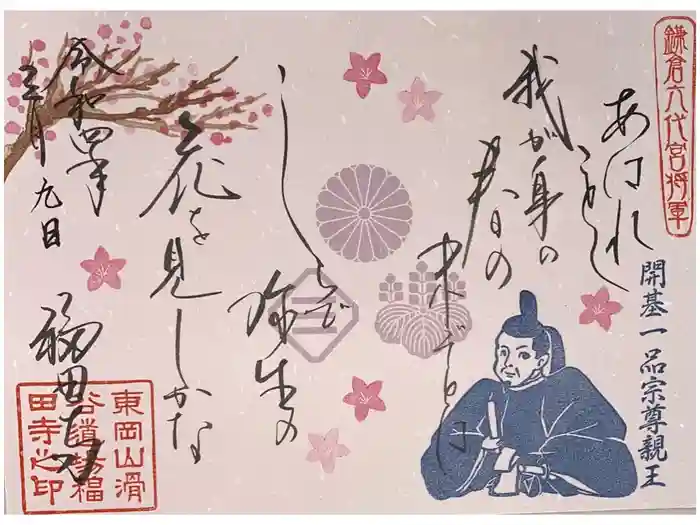 鎌倉六代宮将軍
開基一品宗尊親王
あはれ
我が身の
春の
末ぞとは
しらで
弥生の
花を見しかな
令和四年
三月九日
福田寺
東岡山滑
谷道場福
田寺之印